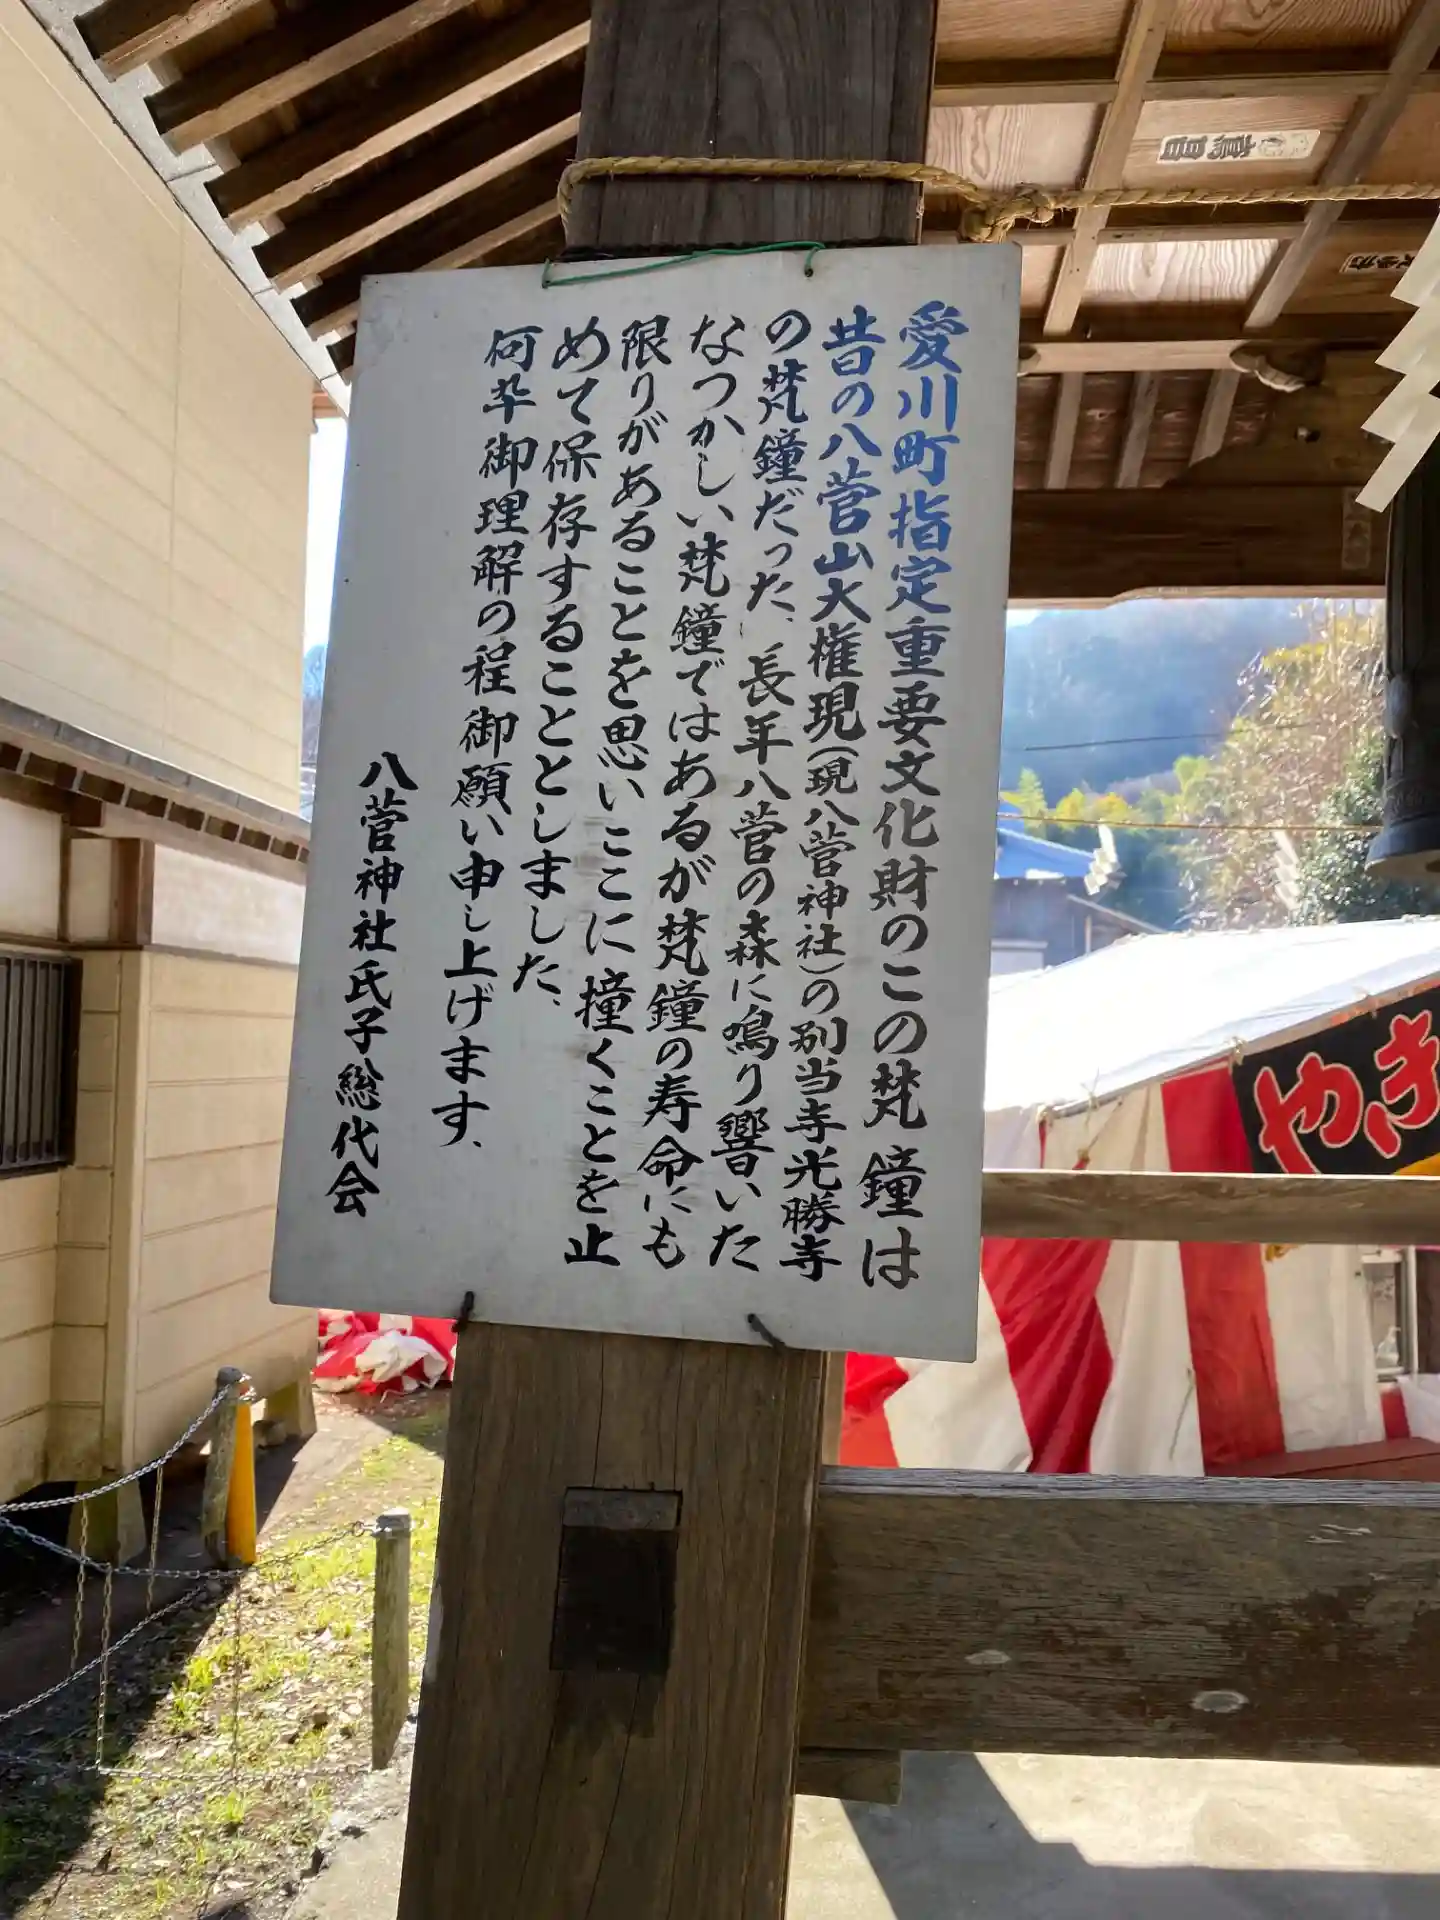 愛川町指定重要文化財のこの梵鐘は
昔の八菅山大権現(現八菅神社)の別当寺光勝寺
の梵鐘だった、長年八菅の森に鳴り響いた
なつかしい梵鐘ではあるが梵鐘の寿命にも
限りがあることを思いここに撞くことを止
めて保存することとしました、
何卒御理解の程御願い申し上げます、
八菅神社氏子総代会
やき